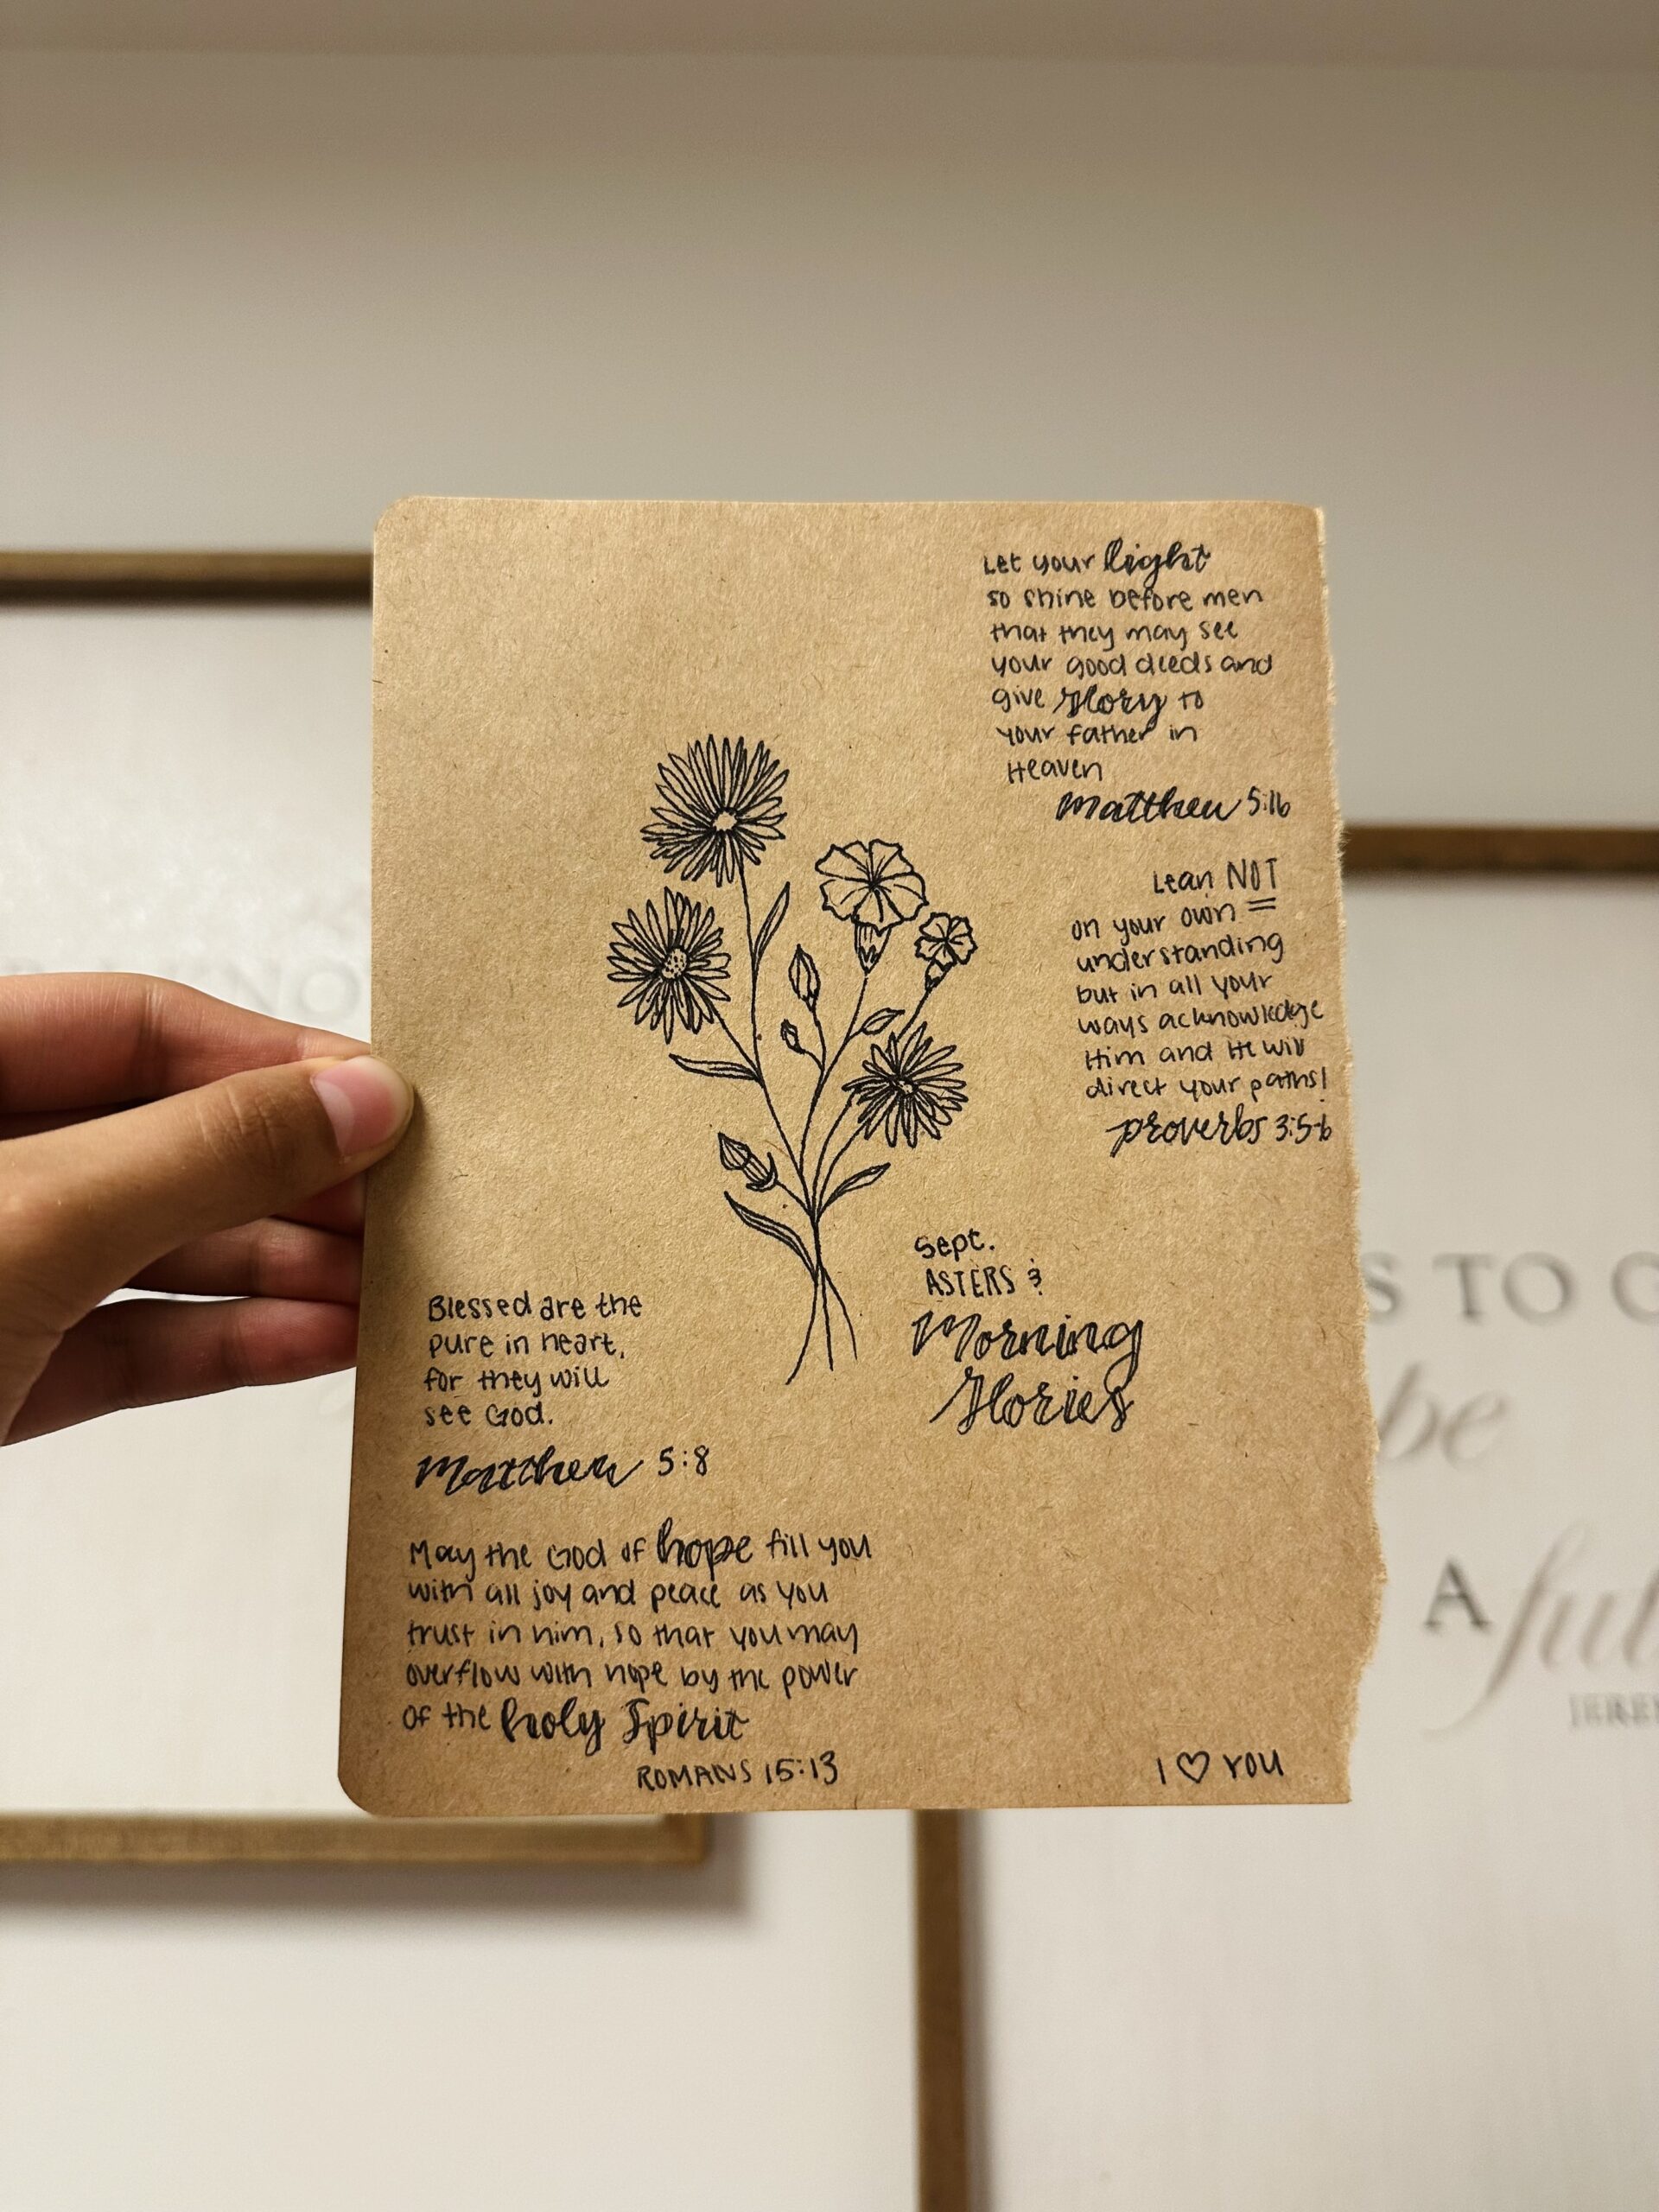 Let your light
so shine before men
that they may see
your good deeds and
give glory to
your father in
Heaven
Matthew 5:16
Lean NOT
on your own
understanding
but in all your
ways acknowledge
Him and He will
direct your paths!
proverbs 3:5-6
Sept.
ASTERS &
Morning
Glories
Blessed are the
pure in heart,
for they will
see God.
Matthew 5:8
May the God of hope fill you
with all joy and peace as you
trust in him, so that you may
overflow with hope by the power
of the holy Spirit
ROMANS 15:13
I ♡ YOU
S TO
be
A